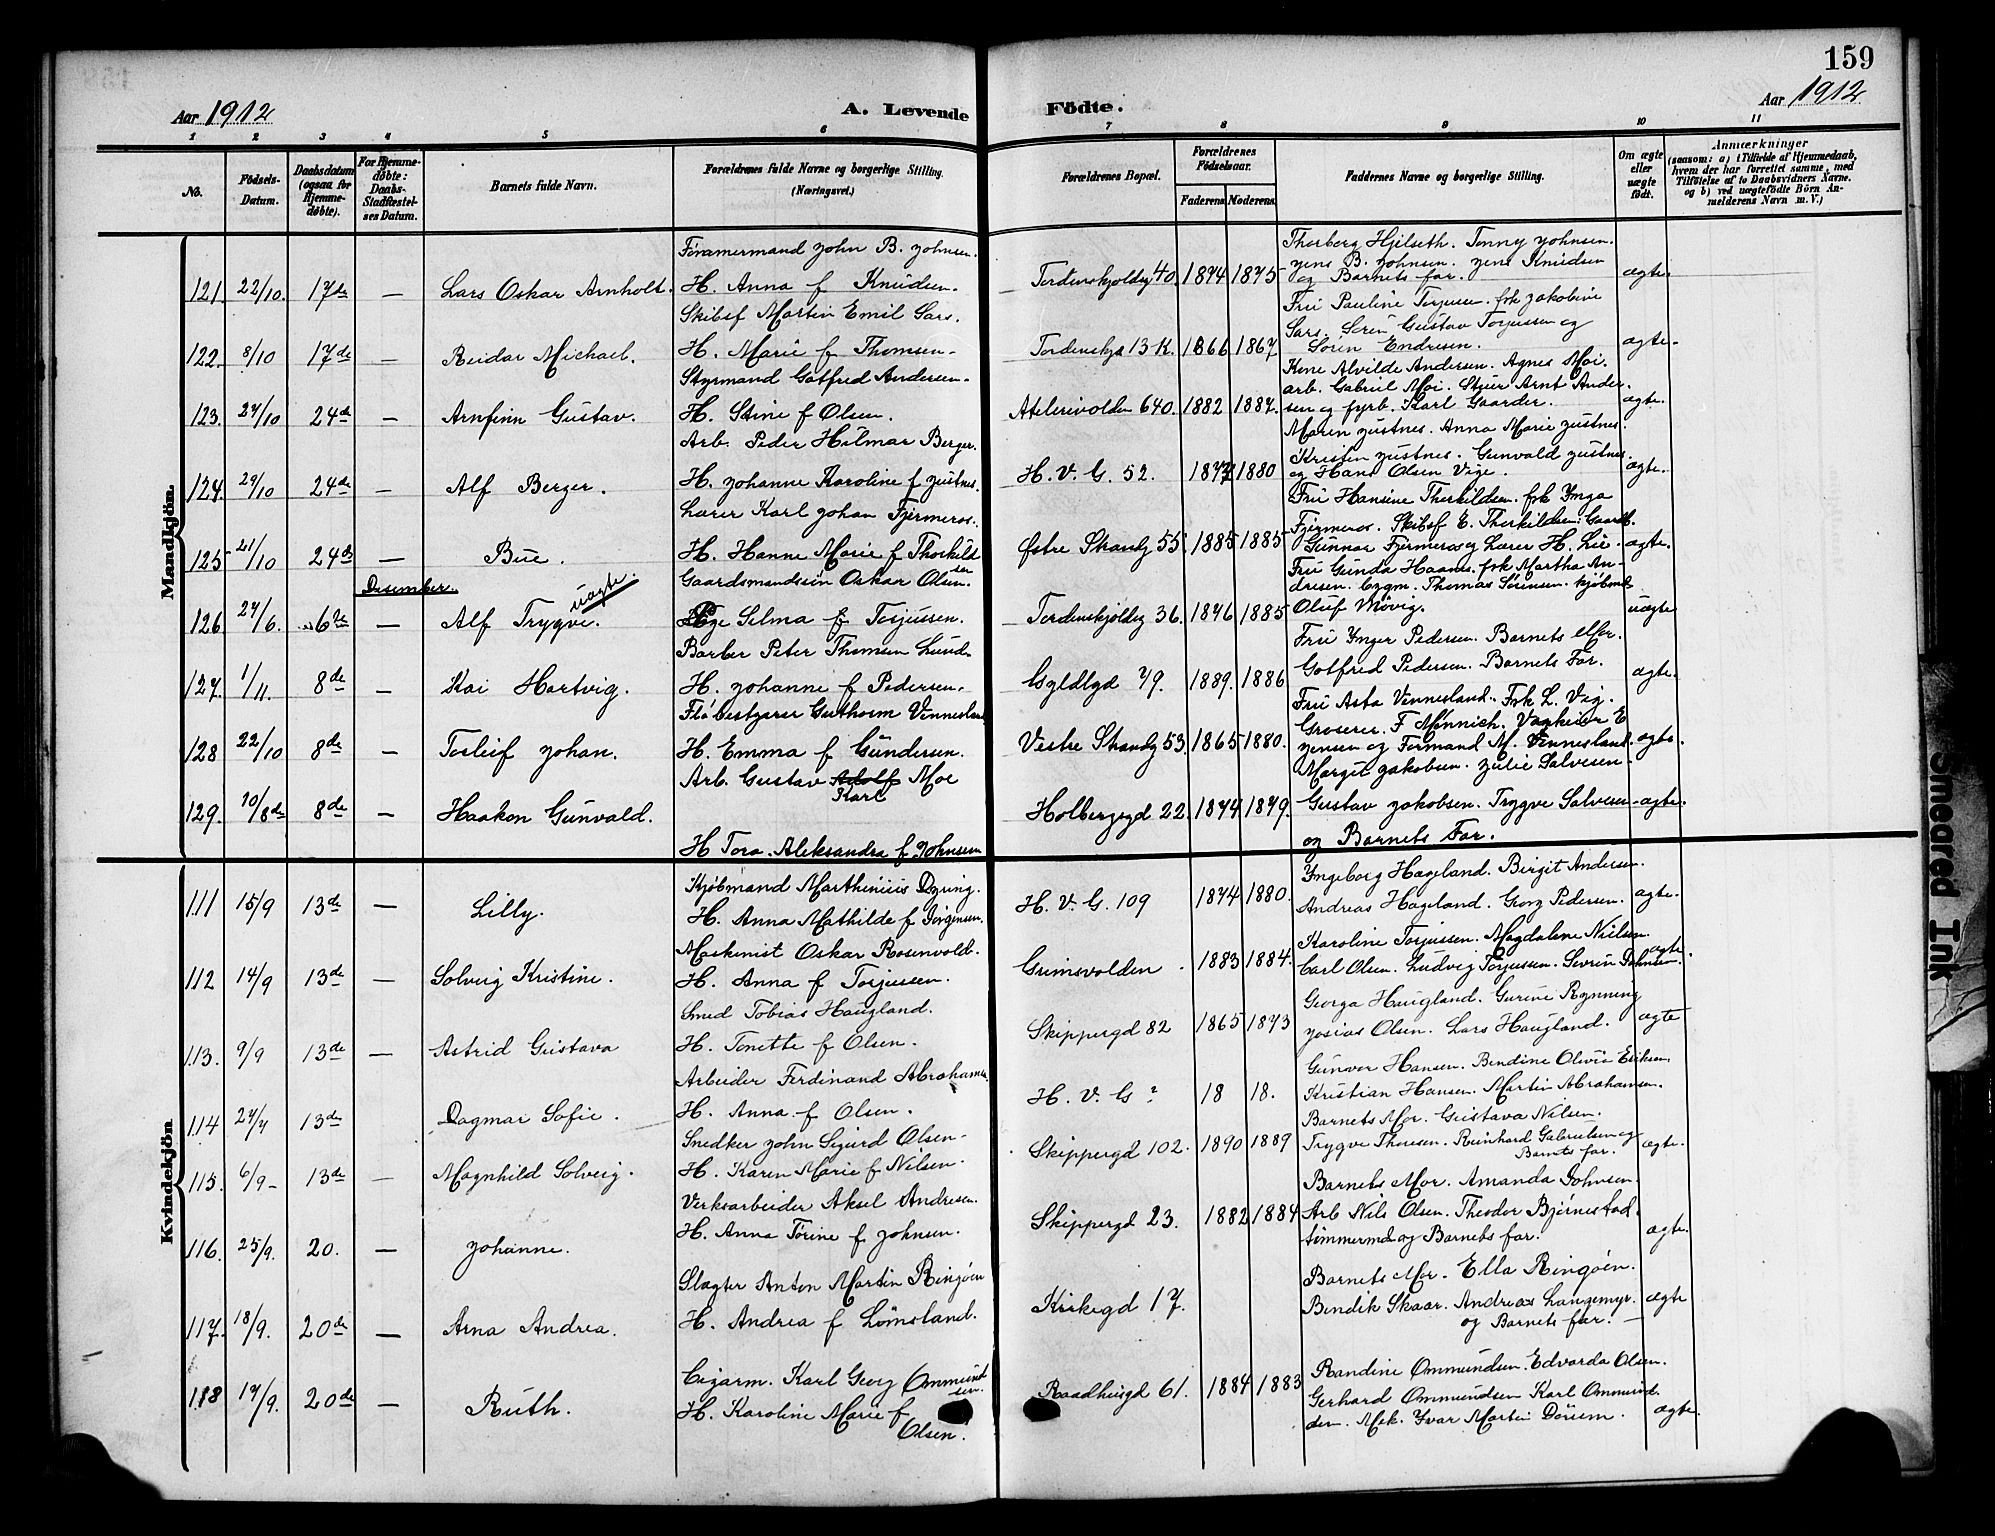 159
Aar 1912
A. Levende Födte.
Aar 1912
1 2 3 4 5 6 7 8 9 10 11
No.
Födsels-Datum.
Daabsdatum (ogsaa for Hjemme-döbte).
For Hjemme-döbte: Daabs-Stadfæstel-ses Datum.
Barnets fulde Navn.
Forældrenes fulde Navne og borgerlige Stilling. (Næringsvei.)
Forældrenes Bopæl.
Forældrenes Födselsaar.
Faderens Moderens
Faddernes Navne og borgerlige Stilling.
Om ægte eller uægte födt.
Anmærkninger
(saasom: a) i Tilfælde af Hjemmedaab, hvem der har forrettet samme, med Tilföielse af to Daabsvidners Navne. og b) ved uægtefödte Börn An-melderens Navn m. V.)
Mandkjön.
121 22/10. 17de — Lars Oskar Arnholt.
John B. Johnsen.
H. Anna f Knudsen.
Tordenskjoldsg 40. 1874 1875
Thorberg Hjelseth. Tonny Johnsen.
Jens B. Johnsen. Jens Knudsen
og Barnets far.
ægte
122 8/10 17de — Reidar Michael.
Skibsf Martin Emil Sars.
H. Marie f Thomsen.
13 K. 1866 1867
Fru Pauline Torjusen. frk Jakobine
Sars. Gustav Torjussen og
Sören Endresen.
ægte
123. 27/10 24de — Arnfinn Gustav.
Styrmand Gotfred Andersen.
H. Stine f Olsen.
640. 1882 1887.
Kone Alvilde Andersen. Agnes Moi.
arb. Gabriel Moi. Arnt Ander-
sen og fyrb. Karl Gaarder.
ægte.
124. 29/10 24de — Alf Berger.
Arb. Peder Hilmar Berger.
H. Johanne Karoline f Justnes.
H. V. G. 52. 1880
Maren Justnes. Anna Marie Justnes.
Kristen Justnes. Gunvald Justnes
og Hans Olsen Vige.
ægte.
125 21/10 24de — Bue.
Lærer Karl Johan Fjermeros.
H. Hanne Marie f Thorkildsen
Østre Strandg 55. 1885 1885
Fru Hansine Therkildsen. frk Ynga
Fjermeros. Skibsf E. Therkildsen.
Gunnar Fjermeros og Lærer H. Lie.
ægte.
Desember.
126 27/6. 6te — Alf Trygve. uægte.
Gaardsmandssön Oskar Olsen.
Pige Selma f Torjussen.
Tordenskjoldsg 36. 1876 1885
Fru Gunda Haans. frk Martha An-
dresen. Thomas Sörensen.
Oluf Mövig.
uægte
127. 1/11. 8de — Kai Hartvig.
Barber Peter Thomsen Lund.
H. Johanne f Pedersen.
Gyldlgd 79. 1889. 1886
Fru Ynger Pedersen. Barnets Mor.
Gotfred Pedersen. Barnets Far.
ægte.
128 22/10 8de — Torleif Johan.
Guthorm Vennesland
H. Emma f Gundersen.
Vestre Strandg 53. 1865 1880.
Fru Asta Vennesland. Frk L. Vig.
Groserer. F Mönnich.
Jensen og Formand M. Vennesland.
ægte.
129. 10/8de 8de — Haakon Gunvald.
Arb. Gustav Adolf Moe
Karl
H Tora Aleksandra f Johnsen
Holbergsgd 22. 1874 1879.
Margit Jakobsen. Julie Salvesen.
Gustav Jakobsen. Trygve Salvesen
og Barnets Far.
ægte.
Kvindekjön
111 15/9 13de — Lilly.
Kjöbmand Marthinius Dyring.
H. Anna Mathilde f Jörgensen.
H. V. G. 109 1874 1880.
Yngeborg Hageland. Birgit Andersen.
Andreas Hageland. Georg Pedersen.
ægte.
112 14/9 13de — Solveig Kristine.
Maskinist Oskar Rosenvold.
H. Anna f Torjussen.
Grimsvolden. 1883 1884.
Karoline Torjussen. Magdalene Nielsen
Carl Olsen. Ludvig Torjussen.
ægte
113. 9/9 13de — Astrid Gustava
Smed Tobias Haugland.
H. Tonette f Olsen.
Skippergd 82 1865 1873
Georga Haugland. Gurine Rynning
Josias Olsen. Lars Haugland.
ægte
114 27/7 13de — Dagmar Sofie.
Arbeider Ferdinand Abrahamsen
H. Anna f Olsen.
H. V. G ? 18 18.
Gunvor Hansen. Bendine Olivia Eriksen.
Kristian Hansen. Martin Abrahamsen.
115. 6/9 — 13de — Magnhild Solveig.
Snedker John Sigurd Olsen.
H. Karen Marie f Nilsen.
Skippergd 102. 1890 1889
Barnets Mor. Gustava Nilsen.
Trygve Thousen. Reinhard Gabrielsen og
Barnets far.
ægte.
116. 25/9. 20. — Johanne.
Verksarbeider Aksel Andresen.
H. Anna Törine f Johnsen.
Skippergd 23. 1882 1884
Barnets Mor. Amanda Johnsen.
Arb Nils Olsen. Theodor Bjørnestad
tömmermd og Barnets far.
ægte.
117. 18/9. 20de — Arna Andrea.
Slagter Anton Martin Ringöen
H. Andrea f Lömsland.
Kirkegd 17.
Barnets Mor. Ella Ringöen.
Bendik Skaar. Andreas Langemyr.
og Barnets far.
ægte
118 17/9. 20de — Ruth.
Cigarm. Karl Georg Ommundsen.
H. Karoline Marie f
Olsen.
Raadhusgd 61. 1884 1883
Randine Ommundsen. Edvarda Olsen.
Gerhard Ommundsen Karl Ommund
Yvar Martin
ægte.
Smeared Ink